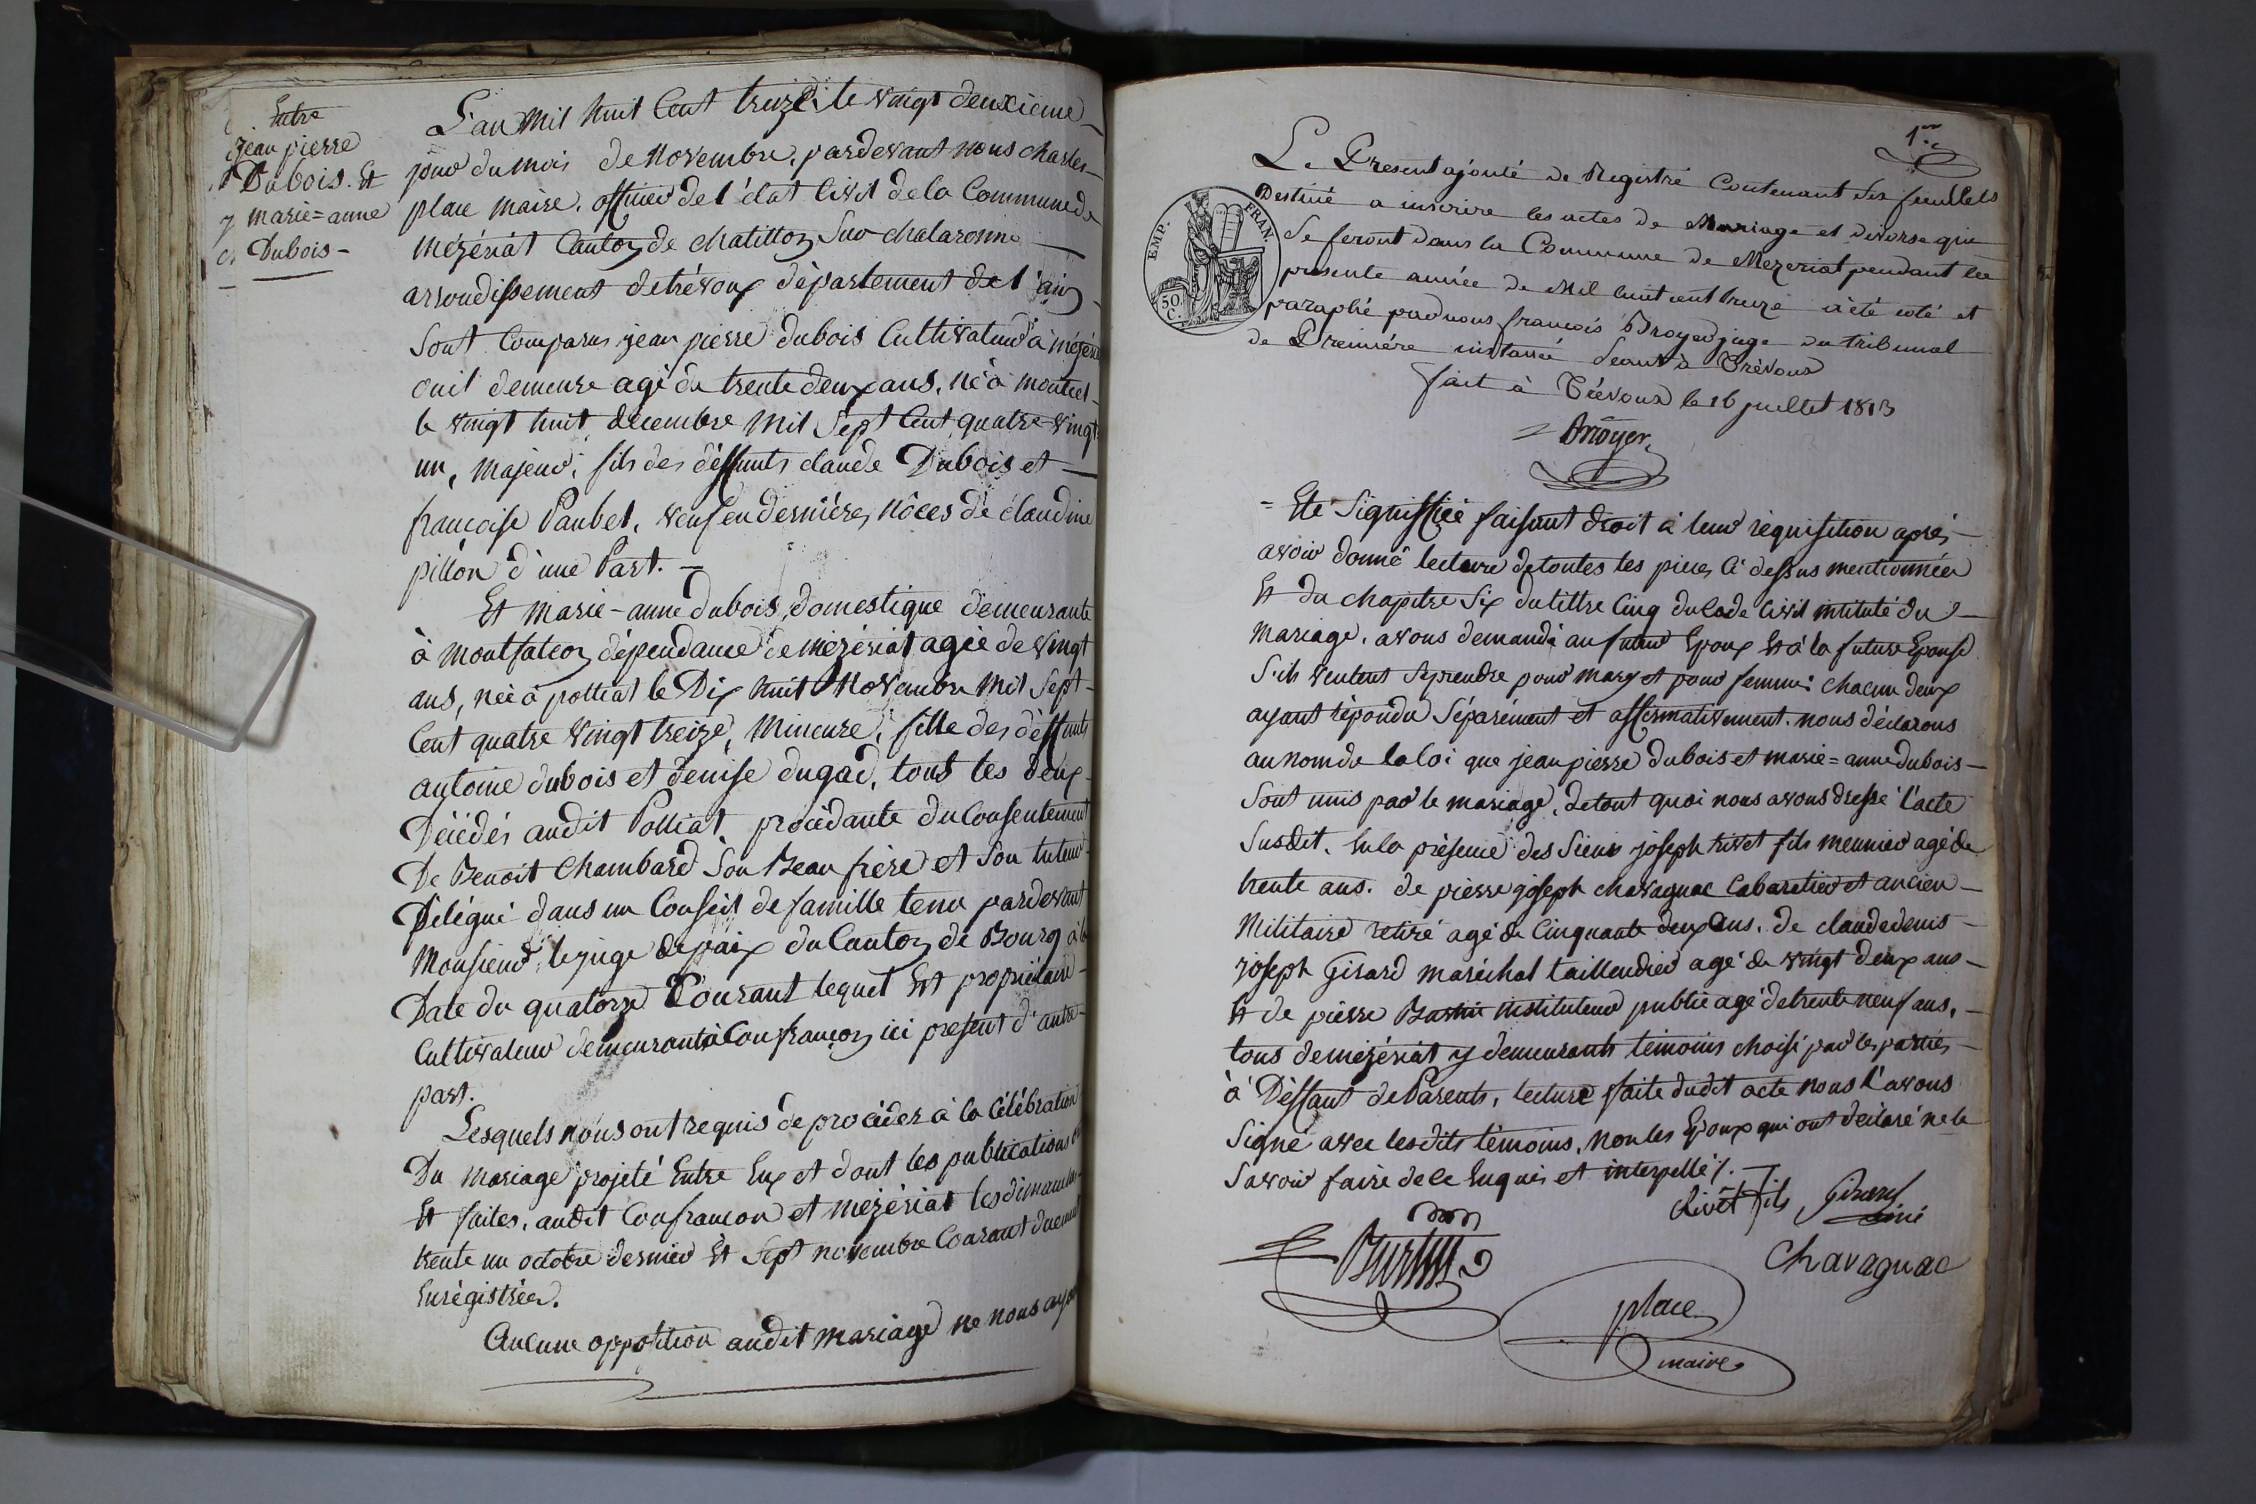 Entre
jean pierre
Dubois. Et
marie=anne
Dubois-
L'an Mil huit Cent treize, le vingt deuxieme
jour du mois de Novembre, pardevant nous charles
place maire, officier de l'état Civil de la Commune de
mézériat Canton de chatillon sur chalaronne
arrondissement de trévoux département de l'ain
Sont Comparus jean pierre dubois Cultivateur à
ou il demeure agé de trente deux ans, né à montcet
le vingt huit décembre Mil Sept Cent quatre vingt
un, majeur, fils des déffunts claude Dubois et
françoise Paubel, veuf en dernières nôces de claudine
pillon d'une Part.
Et marie-anne dubois, domestique demeurante
à montfalcon dépendance de mézériat agée de vingt
ans, née à polliat le Dix huit Novembre Mil Sept
Cent quatre vingt treize, Mineure, fille des déffunts
antoine dubois et denise dugad, tous les deux
Décédés audit Polliat, procédante du Consentement
De Benoit Chambard Son Beau frère et Son tuteur
Délégué dans un Conseil de famille tenu pardevant
Monsieur le juge de paix du Canton de Bourg à la
Date du quatorze Courant lequel Est propriétaire
Cultivateur demeurant à Confrançon ici présent d'autre
part.
Lesquels nous ont requis de procéder à la Célébration
Du Mariage projeté Entre Eux et dont les publications
Et faites, audit Confrancon et mézériat les dimanches
trente un octobre dernier Et Sept novembre Courant duement
Enrégistrées.
Aucune opposition audit mariage ne nous ayant
1er
Le Present ajouté de Registre Contenant six feuillets
Destiné a inscrire les actes de Mariage et divorse qui
Se feront dans la Commune de Mezeriat pendant la
presente année de Mil huit cent treize a été coté et
paraphé par nous françois Broyer juge au tribunal
de Première instance Séant à Trévoux
fait à Trévoux le 16 juillet 1813
Broyer
EMP. FRAN.
50.
C.
= Eté Signiffiée faisant droit à leur réquisition après
avoir donné lecture de toutes les pieces Ci dessus mentionnées
Et du chapitre Six du tittre Cinq du Code Civil intitulé du
Mariage, avons demandé au futur Epoux Et à la future Epouse
S'ils veulent se prendre pour mary et pour femme: chacun deux
ayant répondu Séparément et affirmativement. nous déclarons
au nom de la loi que jean pierre dubois et marie=anne dubois
Sont unis par le mariage, de tout quoi nous avons dressé l'acte
Susdit. En la présence des Sieurs joseph rivet fils meunier agé de
trente ans. de pierre joseph chavagnac Cabaretier et ancien
Militaire retiré agé de Cinquante deux ans. de claude denis
joseph Girard maréchal taillendier agé de vingt deux ans
Et de pierre Burtin instituteur public agé de trente neuf ans,
tous de mézériat y demeurants témoins choisi par les parties
à Déffaut de Parents, lecture faite dudit acte nous l'avons
Signé avec lesdits témoins, non les Epoux qui ont déclaré ne le
Savoir faire de ce Enquis et interpellé /.
Rivet fils Girard
Burtin
Chavagnac
place
maire